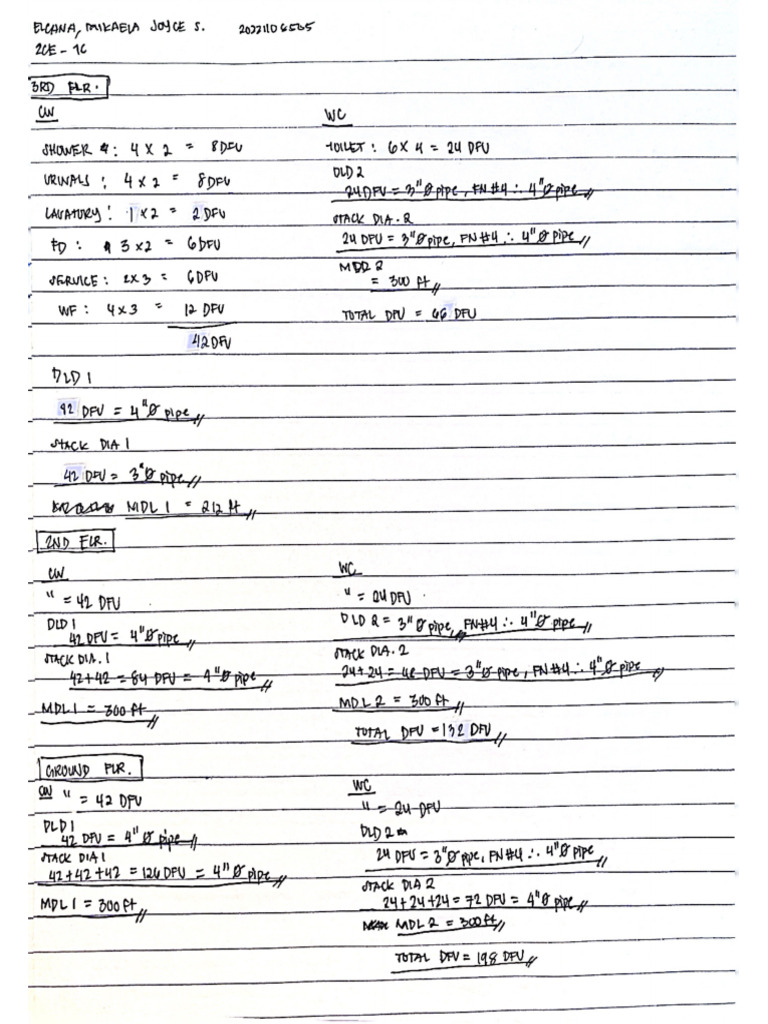 ELCANA, MIKAELA JOYCE S. 20221106505
2CE - 1C
3RD FLR.
CW
SHOWER : 4 X 2 = 8 DFU
URINALS : 4 X 2 = 8 DFU
LAVATORY : 1 X 2 = 2 DFU
FD : 3 X 2 = 6 DFU
SERVICE : 2X3 = 6 DFU
WF : 4 X 3 = 12 DFU
42 DFU
DLD 1
42 DFU = 4"Ø pipe
STACK DIA 1
42 DFU = 3"Ø pipe
MDL 1 = 212 ft
WC
TOILET : 6 X 4 = 24 DFU
DLD 2
24 DFU = 3"Ø pipe, FN#4 ∴ 4"Ø pipe
STACK DIA. 2
24 DFU = 3"Ø pipe, FN#4 ∴ 4"Ø pipe
MDD 2
= 300 ft
TOTAL DFU = 66 DFU
2ND FLR.
CW
" = 42 DFU
DLD 1
42 DFU = 4"Ø pipe
STACK DIA. 1
42 + 42 = 84 DFU = 4"Ø pipe
MDL 1 = 300 ft
WC
" = 24 DFU
DLD 2 = 3"Ø pipe, FN#4 ∴ 4"Ø pipe
STACK DIA. 2
24 + 24 = 48 DFU = 3"Ø pipe, FN#4 ∴ 4"Ø pipe
MDL 2 = 300 ft
TOTAL DFU = 132 DFU
GROUND FLR.
CW " = 42 DFU
DLD 1
42 DFU = 4"Ø pipe
STACK DIA 1
42 + 42 + 42 = 126 DFU = 4"Ø pipe
MDL 1 = 300 ft
WC
" = 24 DFU
DLD 2
24 DFU = 3"Ø pipe, FN#4 ∴ 4"Ø pipe
STACK DIA 2
24 + 24 + 24 = 72 DFU = 4"Ø pipe
MDL 2 = 300 ft
TOTAL DFU = 198 DFU